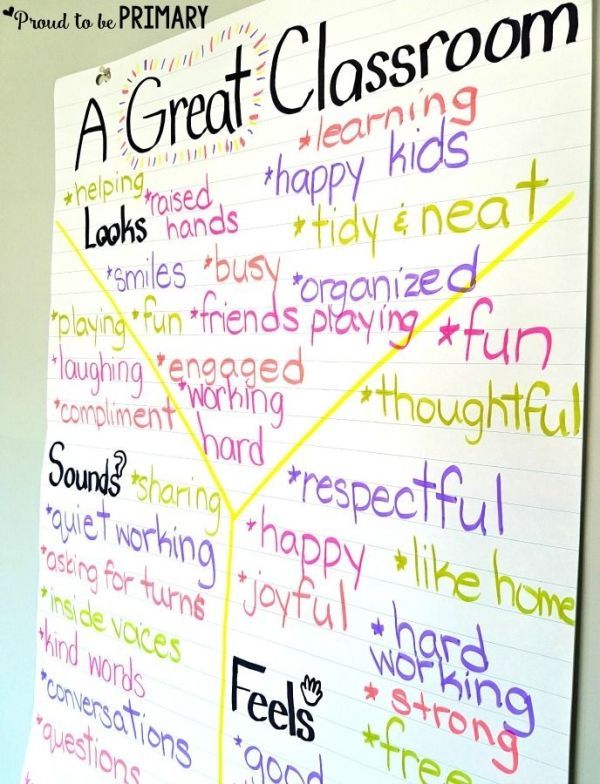 *Proud to be PRIMARY
A Great Classroom
*learning
*helping *raised hands
*happy kids
Looks
*tidy & neat
*smiles *busy *organized
*playing *fun *friends playing
*laughing *engaged
*compliment *working hard
*fun
*thoughtful
Sounds *sharing
*quiet working
*asking for turns
*inside voices
*kind words
*conversations
*questions
*respectful
*happy *like home
*joyful
*hard working
Feels
*strong
*good *free